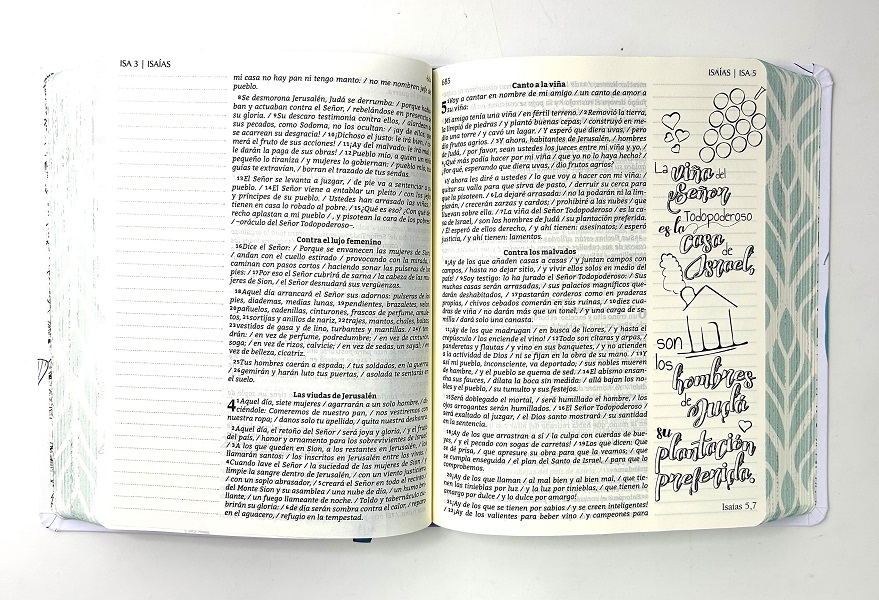 ISA 3 | ISAÍAS
mi casa no hay pan ni tengo manto: / no me nombren jefe de
pueblo.
⁸Se desmorona Jerusalén, Judá se derrumba: / porque
ban y actuaban contra el Señor, / rebelándose en presencia de
su gloria. / ⁹Su descaro testimonia contra ellos, /
sus pecados, como Sodoma, no los ocultan: / ¡ay de ellos,
se acarrean su desgracia! / ¹⁰¡Dichoso el justo: le irá bien,
merá el fruto de sus acciones! / ¹¹¡Ay del malvado: le irá mal,
le darán la paga de sus obras! / ¹²Pueblo mío, a quien un niño
pequeño lo tiraniza / y mujeres lo gobiernan: / pueblo mío, tus
guías te extravían, / borran el trazado de tus sendas.
¹³El Señor se levanta a juzgar, / de pie va a sentenciar a su
pueblo. / ¹⁴El Señor viene a entablar un pleito / con los jefes
y príncipes de su pueblo. / Ustedes han arrasado las viñas,
tienen en casa lo robado al pobre. / ¹⁵¿Qué es eso? ¿Con qué de-
recho aplastan a mi pueblo / , y pisotean la cara de los pobres?
/ –oráculo del Señor Todopoderoso–.
Contra el lujo femenino
¹⁶Dice el Señor: / Porque se envanecen las mujeres de Sion,
/ andan con el cuello estirado / provocando con la mirada, /
caminan con pasos cortos / haciendo sonar las pulseras de los
pies: / ¹⁷Por eso el Señor cubrirá de sarna / la cabeza de las mu-
jeres de Sion, / el Señor desnudará sus vergüenzas.
¹⁸Aquel día arrancará el Señor sus adornos: pulseras de los
pies, diademas, medias lunas, ¹⁹pendientes, brazaletes, velos,
²⁰pañuelos, cadenillas, cinturones, frascos de perfume, amule-
tos, ²¹sortijas y anillos de nariz, ²²trajes, mantos, chales, bolsos,
²³vestidos de gasa y de lino, turbantes y mantillas. / ²⁴Y ten-
drán: / en vez de perfume, podredumbre; / en vez de cinturón,
soga; / en vez de rizos, calvicie; / en vez de sedas, un sayal; / en
vez de belleza, cicatriz.
²⁵Tus hombres caerán a espada; / tus soldados, en la guerra,
/ ²⁶gemirán y harán luto tus puertas, / asolada te sentarás en
el suelo.
Las viudas de Jerusalén
4 ¹Aquel día, siete mujeres / agarrarán a un solo hombre, / di-
ciéndole: Comeremos de nuestro pan, / nos vestiremos con
nuestra ropa; / danos solo tu apellido, / quita nuestra deshonra.
²Aquel día, el retoño del Señor / será joya y gloria, / y el fruto
del país, / honor y ornamento para los sobrevivientes de Israel.
/ ³A los que queden en Sion, a los restantes en Jerusalén, / los
llamarán santos: / los inscritos en Jerusalén entre los vivos. /
⁴Cuando lave el Señor / la suciedad de las mujeres de Sion / y
limpie la sangre dentro de Jerusalén, / con un viento justiciero,
/ con un soplo abrasador, / ⁵creará el Señor en todo el recinto /
del Monte Sion y su asamblea / una nube de día, / un humo bri-
llante, / un fuego llameante de noche. / Toldo y tabernáculo cu-
brirán su gloria: / ⁶de día serán sombra contra el calor, / reparo
en el aguacero, / refugio en la tempestad.
685
ISAÍAS | ISA 5
Canto a la viña
5 ¹Voy a cantar en nombre de mi amigo / un canto de amor a
su viña:
Mi amigo tenía una viña / en fértil terreno. / ²Removió la tierra,
la limpió de piedras / y plantó buenas cepas; / construyó en me-
dio una torre / y cavó un lagar. / Y esperó que diera uvas, / pero
dio frutos agrios. / ³Y ahora, habitantes de Jerusalén, / hombres
de Judá, / por favor, sean ustedes los jueces entre mi viña y yo. /
⁴¿Qué más podía hacer por mi viña / que yo no lo haya hecho? /
¿Por qué, esperando que diera uvas, / dio frutos agrios?
⁵Y ahora les diré a ustedes / lo que voy a hacer con mi viña: /
quitar su valla para que sirva de pasto, / derruir su cerca para
que la pisoteen. / ⁶La dejaré arrasada: / no la podarán ni la lim-
piarán, / crecerán zarzas y cardos; / prohibiré a las nubes / que
lluevan sobre ella. / ⁷La viña del Señor Todopoderoso / es la ca-
sa de Israel, / son los hombres de Judá / su plantación preferida.
/ Él esperó de ellos derecho, / y ahí tienen: asesinatos; / esperó
justicia, / y ahí tienen: lamentos.
Contra los malvados
⁸¡Ay de los que añaden casas a casas / y juntan campos con
campos, / hasta no dejar sitio, / y vivir ellos solos en medio del
país! / ⁹Soy testigo: lo ha jurado el Señor Todopoderoso: / Sus
muchas casas serán arrasadas, / sus palacios magníficos que-
darán deshabitados, / ¹⁷pastarán corderos como en praderas
propias, / chivos cebados comerán en sus ruinas, / ¹⁰diez cua-
dras de viña / no darán más que un tonel, / y una carga de se-
milla / dará solo una canasta.
¹¹¡Ay de los que madrugan / en busca de licores, / y hasta el
crepúsculo / los enciende el vino! / ¹²Todo son cítaras y arpas, /
panderetas y flautas / y vino en sus banquetes, / y no atienden
a la actividad de Dios / ni se fijan en la obra de su mano. / ¹³Y
así mi pueblo, inconsciente, va deportado; / sus nobles mueren
de hambre, / y el pueblo se quema de sed. / ¹⁴El abismo ensan-
cha sus fauces, / dilata la boca sin medida: / allá bajan los no-
bles y el pueblo, / su tumulto y sus festejos.
¹⁵Será doblegado el mortal, / será humillado el hombre, / los
ojos arrogantes serán humillados. / ¹⁶El Señor Todopoderoso /
será exaltado al juzgar, / el Dios santo mostrará / su santidad
en la sentencia.
¹⁸¡Ay de los que arrastran a sí / la culpa con cuerdas de bue-
yes, / y el pecado con sogas de carretas! / ¹⁹Los que dicen: Que
se dé prisa, / que apresure su obra para que la veamos; / que
se cumpla enseguida / el plan del Santo de Israel, / para que lo
comprobemos.
²⁰¡Ay de los que llaman / al mal bien y al bien mal, / que tie-
nen las tinieblas por luz / y la luz por tinieblas, / que tienen lo
amargo por dulce / y lo dulce por amargo!
²¹¡Ay de los que se tienen por sabios / y se creen inteligentes!
/ ²²¡Ay de los valientes para beber vino / y campeones para
La viña del
Señor
Todopoderoso
es la casa
de
Israel,
son
los
hombres
de Judá
su
plantación
preferida.
Isaías 5,7